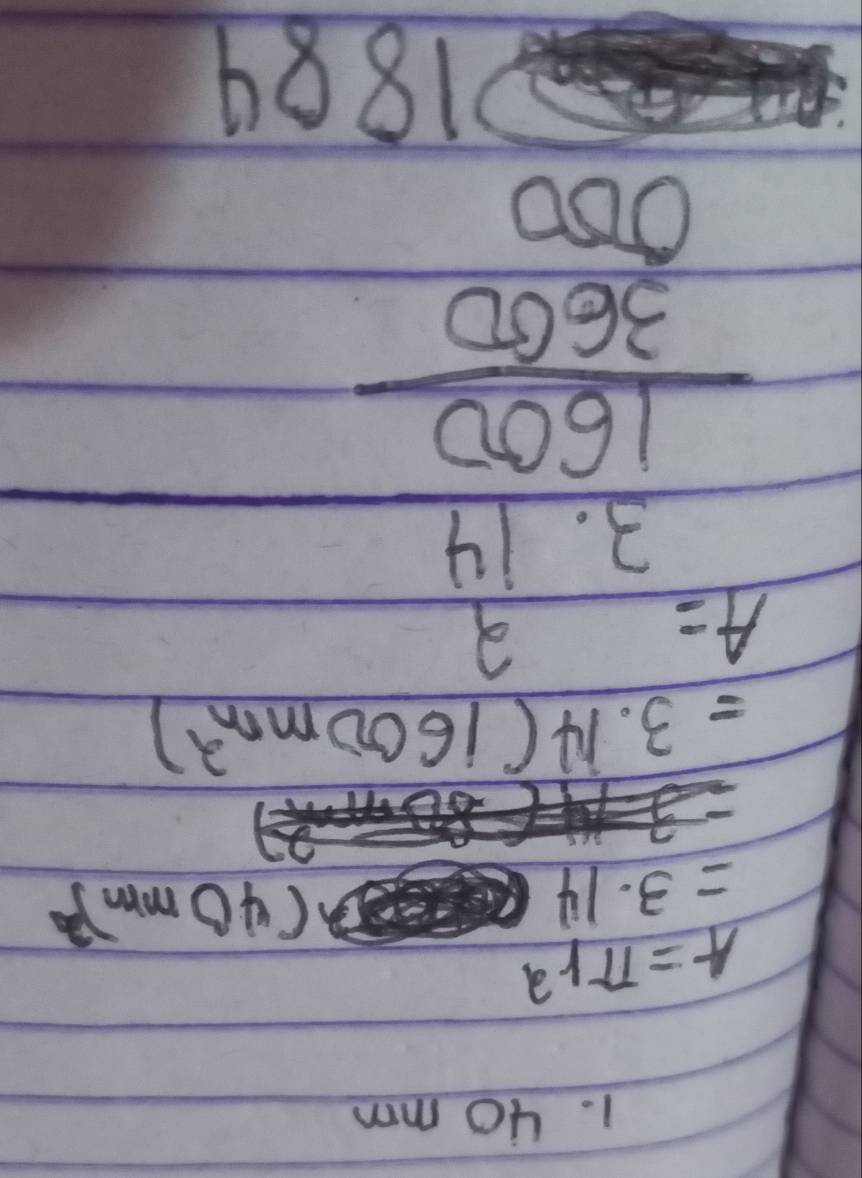 1. 40 mm
A = πr²
= 3.14 (40 mm)²
= 3.14 (1600 mm²)
A = 2
3. 14
1600
3600
000
1884